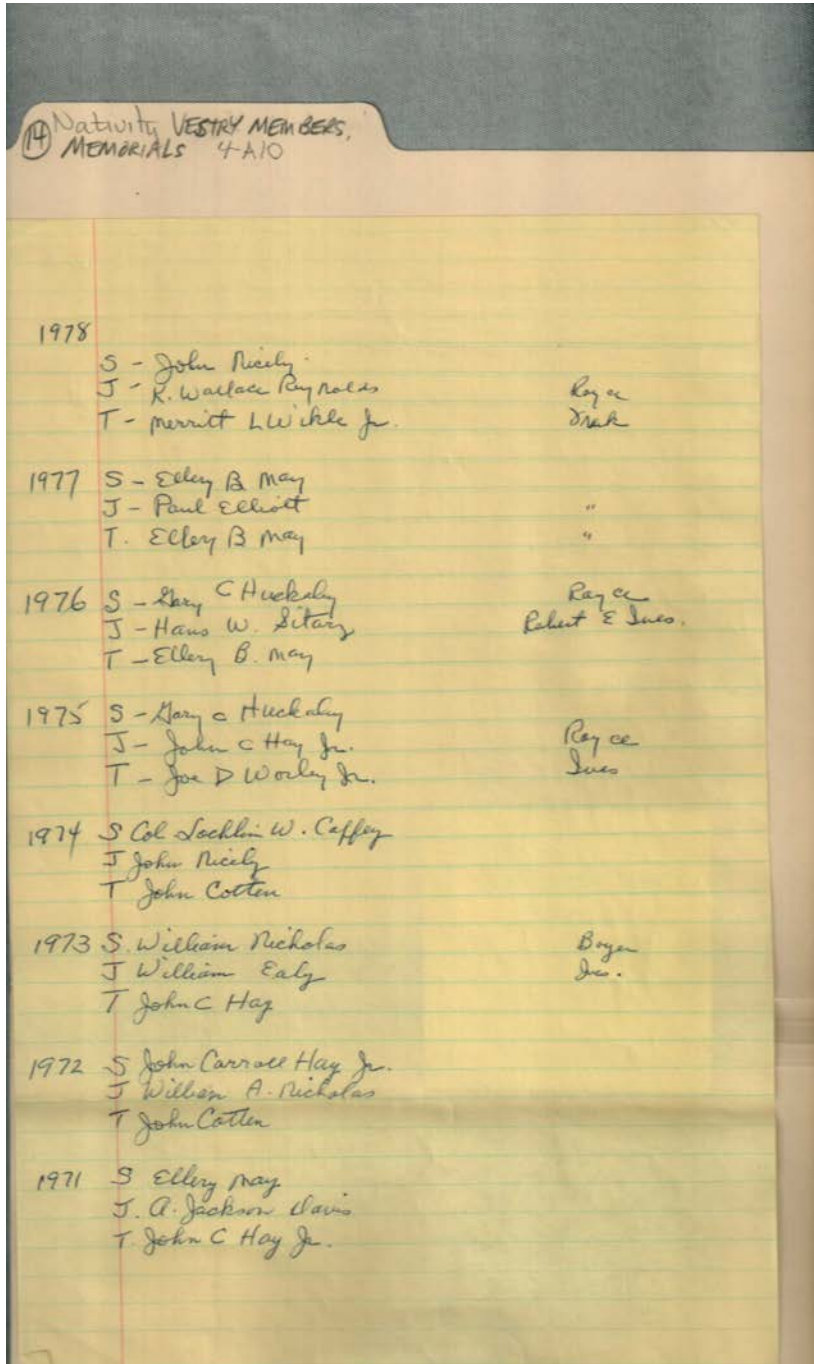 14 Nativity VESTRY MEMBERS,
MEMORIALS 4-A10
1978
S - John Nicely
J - R. Wallace Reynolds Royce
T - Merritt L Wikle Jr.
1977 S - Ellery B May
J - Paul Elliott "
T. Ellery B May "
1976 S - Gary C Huckaby Royce
J - Hans W. Sitarz Robert E Ives.
T - Ellery B. May
1975 S - Gary C Huckaby
J - John C Hay Jr. Royce
T - Joe D Worley Jr. Ives
1974 S Col Lochlin W. Caffey
J John Nicely
T John Cotten
1973 S. William Nicholas
J William Ealy Ives.
T John C Hay
1972 S John Carroll Hay Jr.
J William A. Nicholas
T John Cotten
1971 S Ellery May
J. A. Jackson Davis
T. John C Hay Jr.